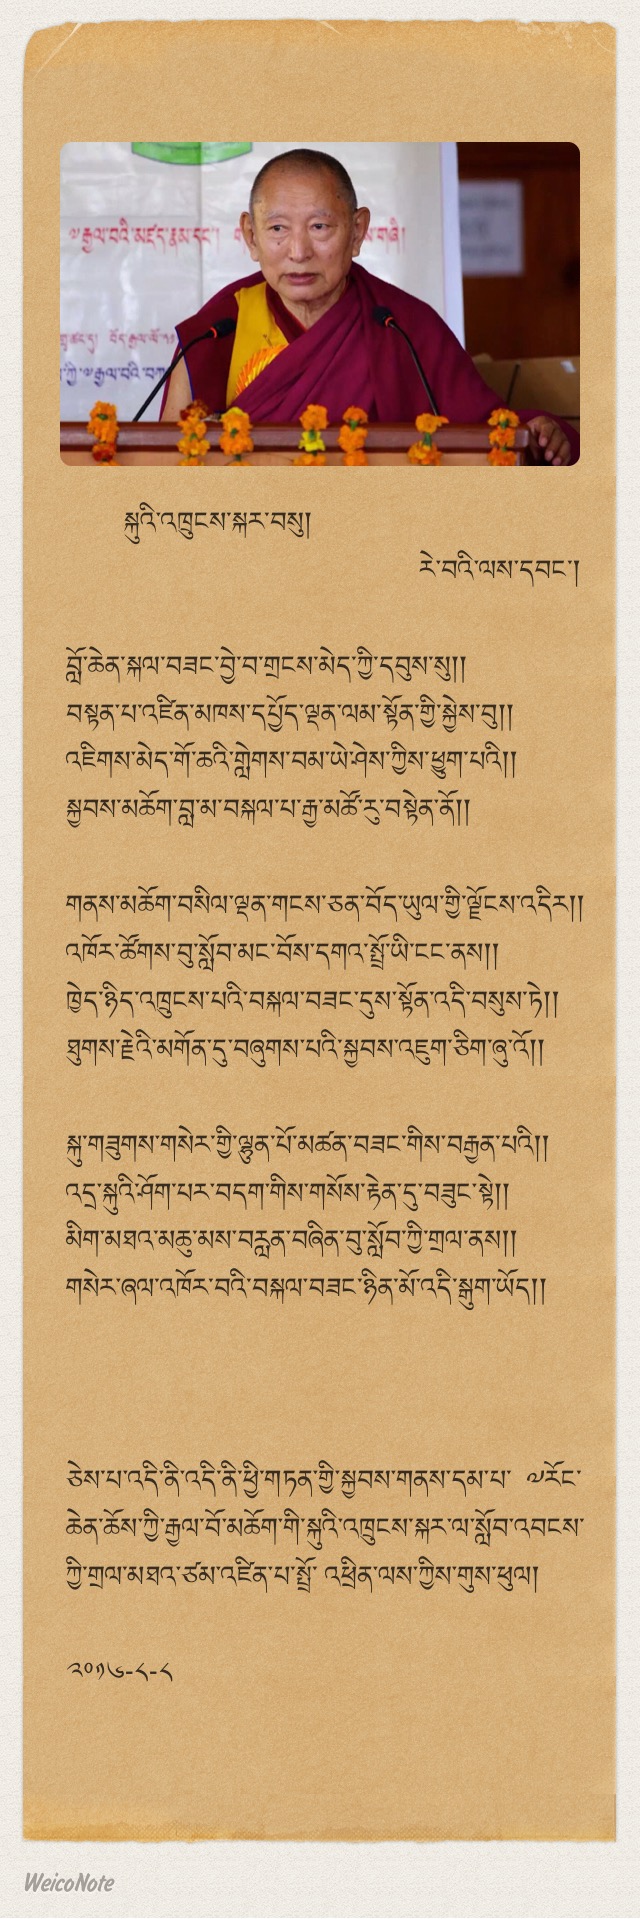 ༧རྒྱལ་བའི་མཛད་རྣམ་དང་།
སྐུའི་འཁྲུངས་སྐར་བསུ།
རེ་བའི་ལས་དབང་།
བློ་ཆེན་སྐལ་བཟང་བྱེ་བ་གྲངས་མེད་ཀྱི་དབུས་སུ།།
བསྟན་པ་འཛིན་མཁས་དཔྱོད་ལྡན་ལམ་སྟོན་གྱི་སྐྱེས་བུ།།
འཇིགས་མེད་གོ་ཆའི་གླེགས་བམ་ཡེ་ཤེས་ཀྱིས་ཕྱུག་པའི།།
སྐྱབས་མཆོག་བླ་མ་བསྐལ་པ་རྒྱ་མཚོ་རུ་བསྟེན་ནོ།།
གནས་མཆོག་བསིལ་ལྡན་གངས་ཅན་བོད་ཡུལ་གྱི་ལྗོངས་འདིར།།
འཁོར་ཚོགས་བུ་སློབ་མང་བོས་དགའ་སྤྲོ་ཡི་ངང་ནས།།
ཁྱེད་ཉིད་འཁྲུངས་པའི་བསྐལ་བཟང་དུས་སྟོན་འདི་བསུས་ཏེ།།
ཐུགས་རྗེའི་མགོན་དུ་བཞུགས་པའི་སྐྱབས་འཇུག་ཅིག་ཞུ་འོ།།
སྐུ་གཟུགས་གསེར་གྱི་ལྷུན་པོ་མཚན་བཟང་གིས་བརྒྱན་པའི།།
འདྲ་སྐུའི་ཤོག་པར་བདག་གིས་གསོས་རྟེན་དུ་བཟུང་སྟེ།།
མིག་མཐའ་མཆུ་མས་བརླན་བཞིན་བུ་སློབ་ཀྱི་གྲལ་ནས།།
གསེར་ཞལ་འཁོར་བའི་བསྐལ་བཟང་ཉིན་མོ་འདི་སྒུག་ཡོད།།
ཅེས་པ་འདི་ནི་འདི་ནི་ཕྱི་གཏན་གྱི་སྐྱབས་གནས་དམ་པ་ ༧རོང་
ཆེན་ཆོས་ཀྱི་རྒྱལ་བོ་མཆོག་གི་སྐུའི་འཁྲུངས་སྐར་ལ་སློབ་འབངས་
ཀྱི་གྲལ་མཐའ་ཙམ་འཛིན་པ་སྤྲོ་ འཕྲིན་ལས་ཀྱིས་གུས་ཕུལ།
༢༠༡༦-༨-༨
WeicoNote